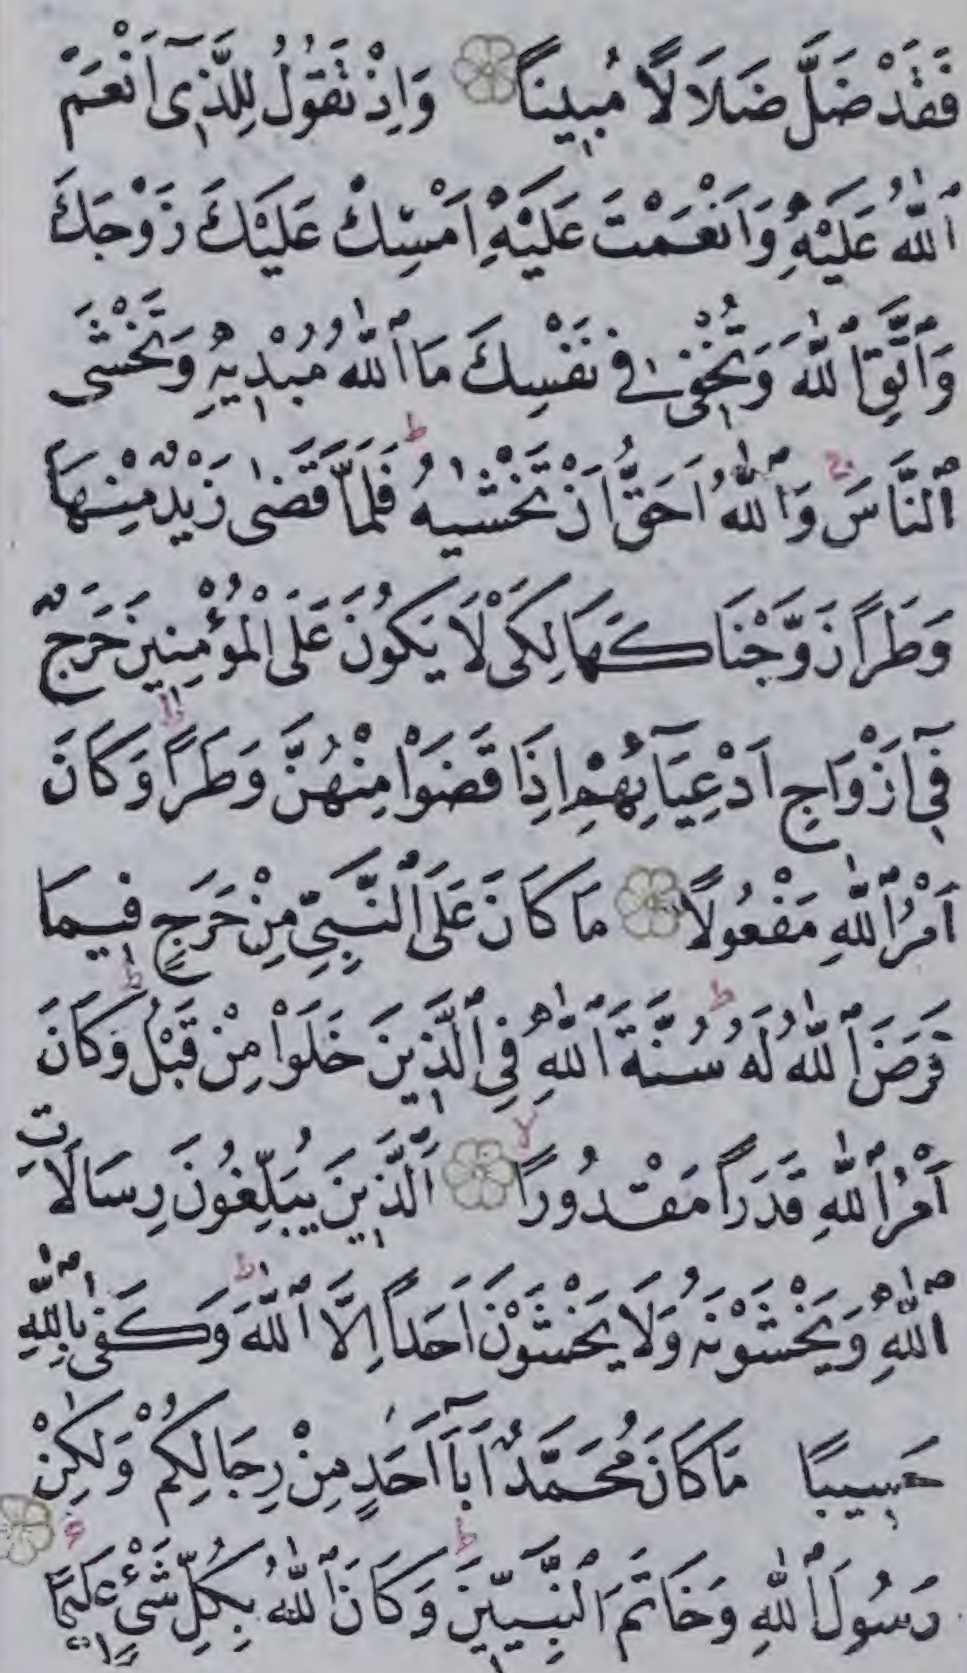 فَقَدْ ضَلَّ ضَلَالًا مُبِينًا وَاِذْ تَقُولُ لِلَّذِٓى اَنْعَمَ
ٱللّٰهُ عَلَيْهِ وَاَنْعَمْتَ عَلَيْهِ اَمْسِكْ عَلَيْكَ زَوْجَكَ
وَٱتَّقِ ٱللّٰهَ وَتُخْفِى فِى نَفْسِكَ مَا ٱللّٰهُ مُبْدِيهِ وَتَخْشَى
ٱلنَّاسَ وَٱللّٰهُ اَحَقُّ اَنْ تَخْشٰيهُ فَلَمَّا قَضٰى زَيْدٌ مِنْهَا
وَطَرًا زَوَّجْنَاكَهَا لِكَىْ لَا يَكُونَ عَلَى الْمُؤْمِنِينَ حَرَجٌ
فِٓى اَزْوَاجِ اَدْعِيَٓائِهِمْ اِذَا قَضَوْا مِنْهُنَّ وَطَرًا وَكَانَ
اَمْرُ ٱللّٰهِ مَفْعُولًا مَا كَانَ عَلَى ٱلنَّبِىِّ مِنْ حَرَجٍ فِيمَا
فَرَضَ ٱللّٰهُ لَهُ سُنَّةَ ٱللّٰهِ فِى ٱلَّذِينَ خَلَوْا مِنْ قَبْلُ وَكَانَ
اَمْرُ ٱللّٰهِ قَدَرًا مَقْدُورًا اَلَّذِينَ يُبَلِّغُونَ رِسَالَاتِ
ٱللّٰهِ وَيَخْشَوْنَهُ وَلَا يَخْشَوْنَ اَحَدًا اِلَّا ٱللّٰهَ وَكَفٰى بِٱللّٰهِ
حَسِيبًا مَا كَانَ مُحَمَّدٌ اَبَٓا اَحَدٍ مِنْ رِجَالِكُمْ وَلٰكِنْ
رَسُولَ ٱللّٰهِ وَخَاتَمَ ٱلنَّبِيِّينَ وَكَانَ ٱللّٰهُ بِكُلِّ شَىْءٍ عَلِيمًا